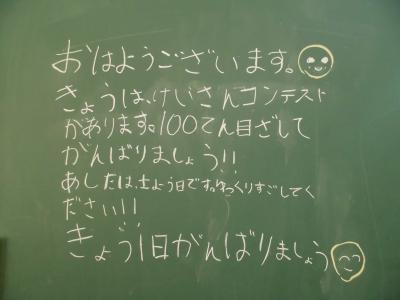 おはようございます。
きょうは、けいさんコンテスト
があります。100てん目ざして
がんばりましょう!!
あしたは、土よう日です。ゆっくりすごしてく
ださい!!
きょう1日がんばりましょう